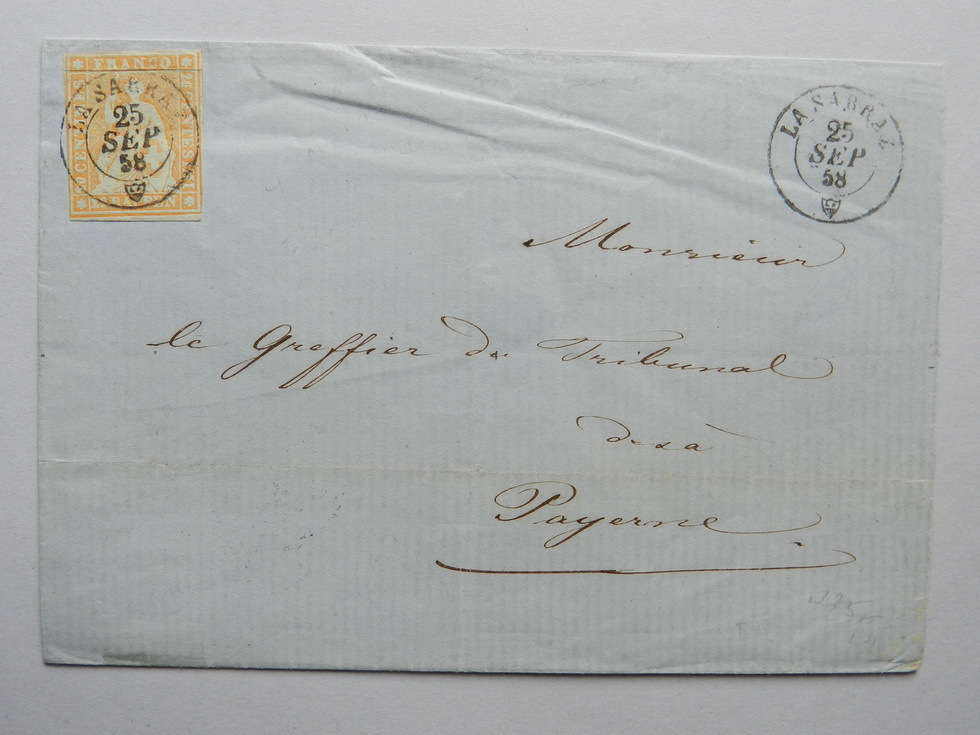 FRANCO
LA SARRAZ
25
SEP
58
LA SARRAZ
25
SEP
58
Monsieur
le Greffier du Tribunal
à
Payerne